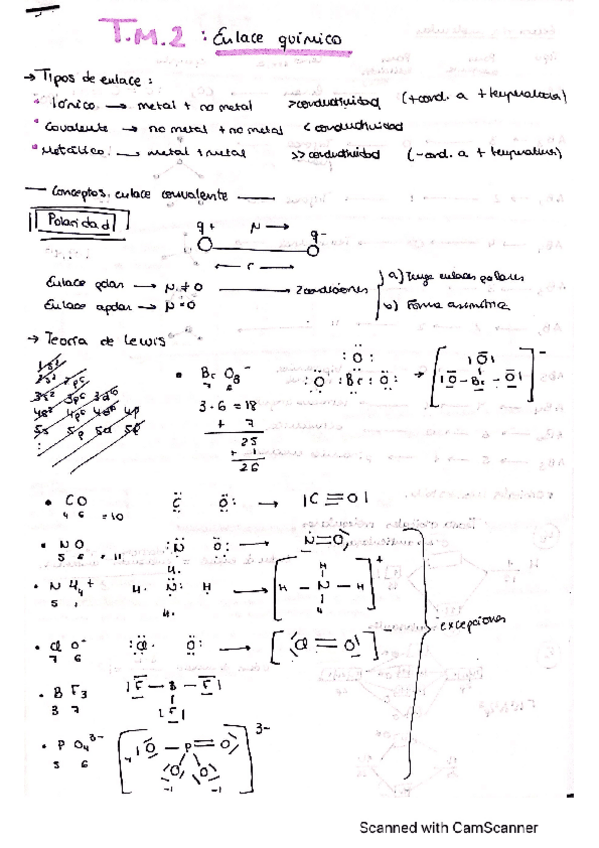 T.M.2 : Enlace químico
→ Tipos de enlace :
• Iónico → metal + no metal >conductividad (+cond. a +temperatura)
• Covalente → no metal + no metal < conductividad
• Metálico → metal + metal >> conductividad (-cond. a + temperatura)
— Conceptos enlace convalente —
Polaridad
q+ μ → q-
← r →
Enlace polar → μ ≠ 0 → 2 condiciones a) Tenga enlaces polares
Enlace apolar → μ = 0 b) Forma asimétrica
→ Teoría de Lewis
1s²
2s² 2p⁶
3s² 3p⁶ 3d⁶
5s 5p 5d 5f
• Br O₃⁻ :O: :O: Br :O: → [|O - Br - O|]⁻
3·6 = 18
+ 7
25
+ 1
26
• CO C O: → |C≡O|
4 6 = 10
• NO :N O: → N=O
5 6 = 11
• NH₄⁺ H. :N: H → [H - N - H]⁺
5 1
• ClO⁻ :Cl: O: → [Cl = O]⁻
7 6
excepciones
• BF₃ |F - B - F|
3 7 |F|
• PO₄³⁻ [|O - P = O]³⁻
5 6 O O
-1 -1
Scanned with CamScanner